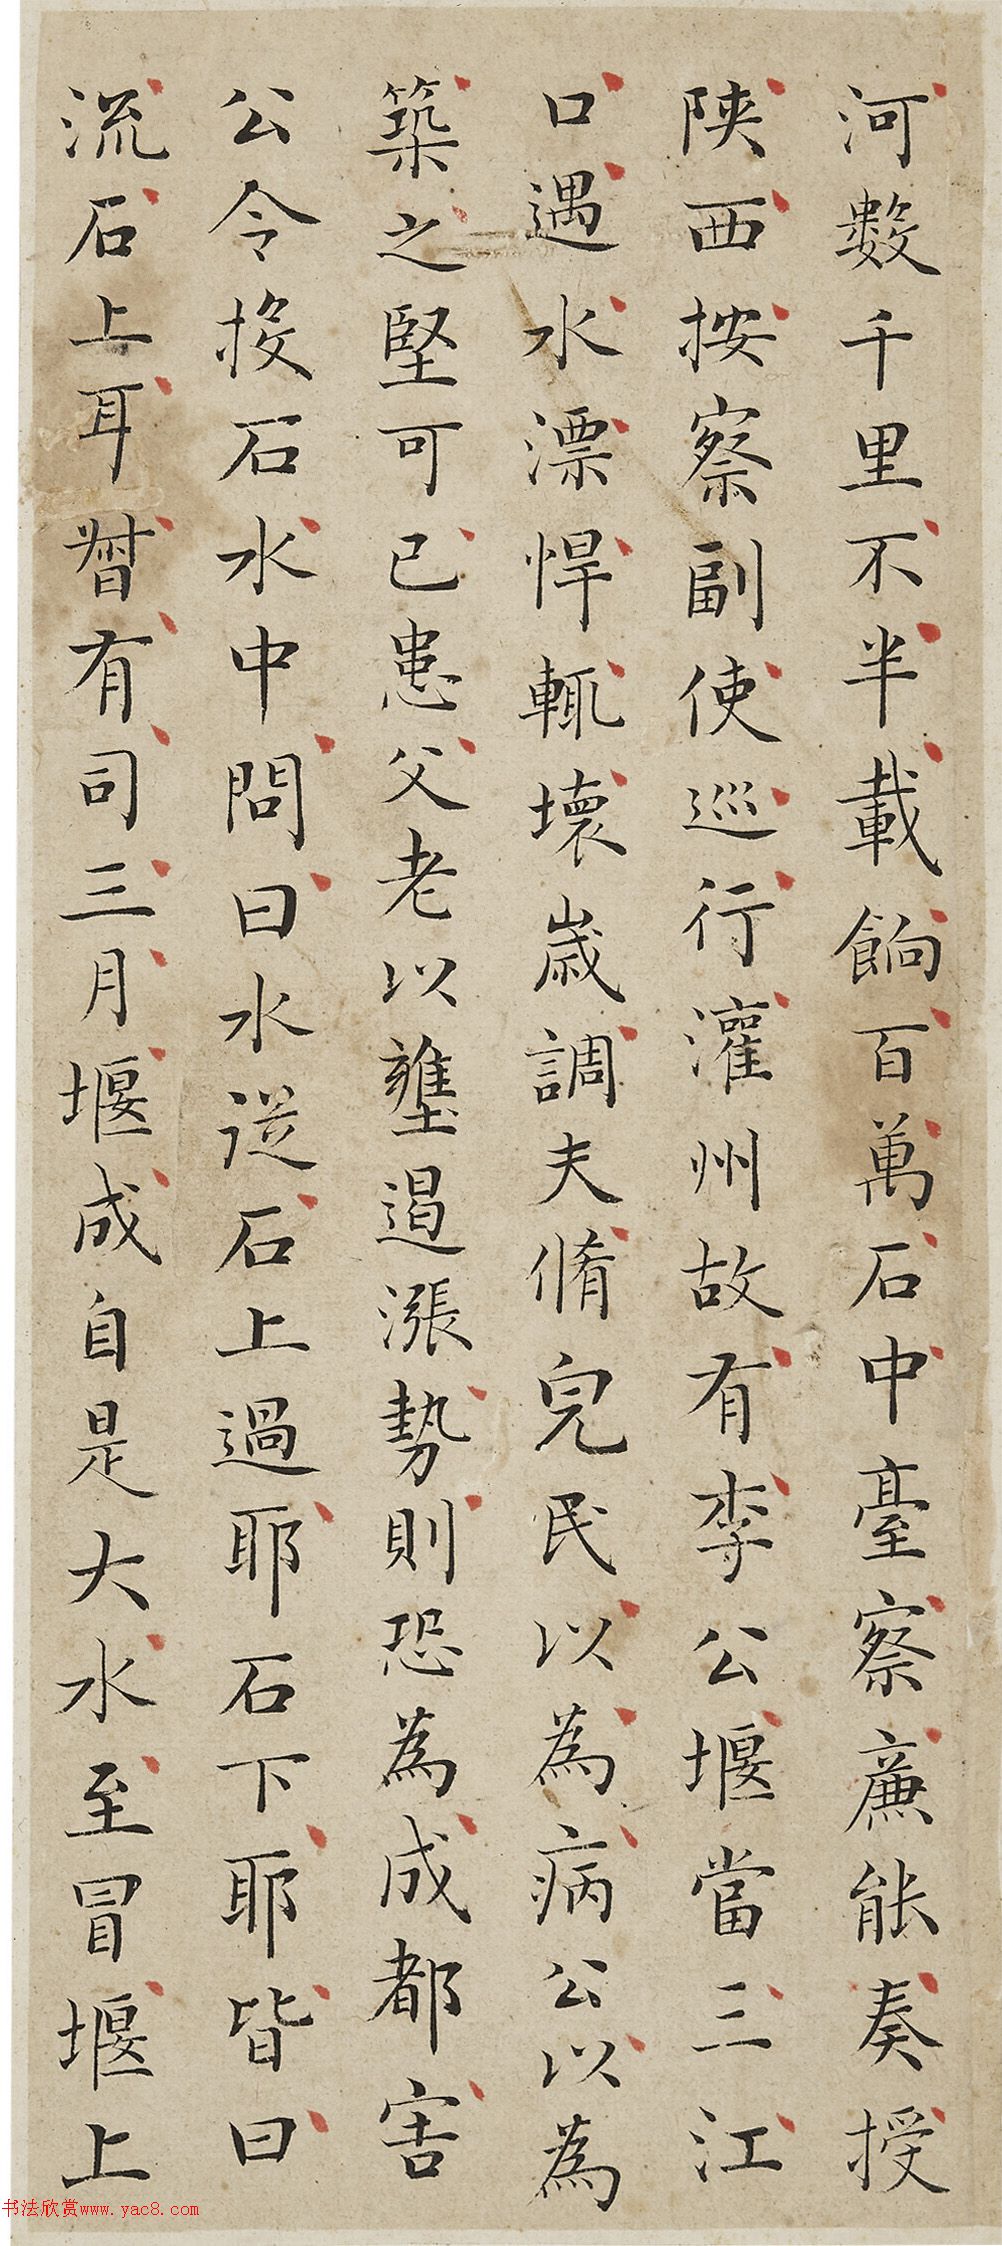 河數千里不半載餉百萬石中臺察廉能奏授
陝西按察副使巡行灌州故有李公堰當三江
口遇水漂悍輒壞歲調夫脩皃民以為病公以為
築之堅可已患父老以壅遏漲勢則恐為成都害
公令投石水中問曰水從石上過耶石下耶皆曰
流石上耳督有司三月堰成自是大水至冒堰上
书法欣赏www.yac8.com